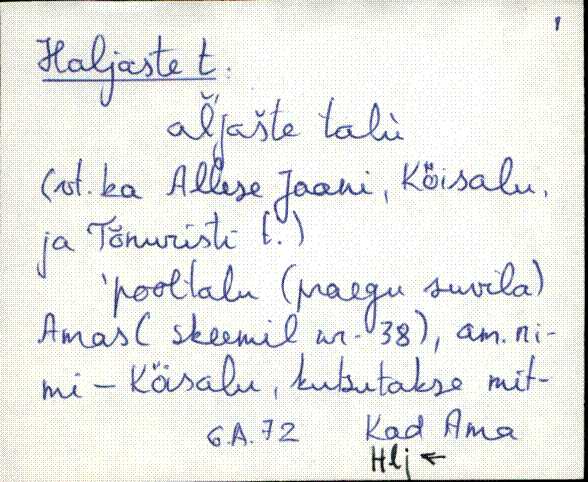 1
Haljaste t.
aĺjašte talù
(vt. ka Allese Jaani, Kõisalu,
ja Tõnuristi t.)
'pooltalu (praegu suvila)
Amas (skeemil nr. 38), am. ni-
mi – Kõisalu, kutsutakse mit-
G.A. 72 Kad Ama
Hlj ←